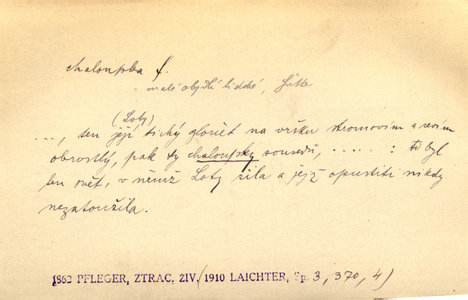 chaloupka f.
= malé obydlí lidské, Hütte
(Loty)
..., ten její tichý gloriet na vršku stromovím a révím
obrostlý, pak ty chaloupky sousedů, ..... : to byl
ten svět, v němž Loty žila a jejž opustiti nikdy
nezatoužila.
1862 PFLEGER, ZTRAC. ŽIV. (1910 LAICHTER, Sp. 3, 370, 4)